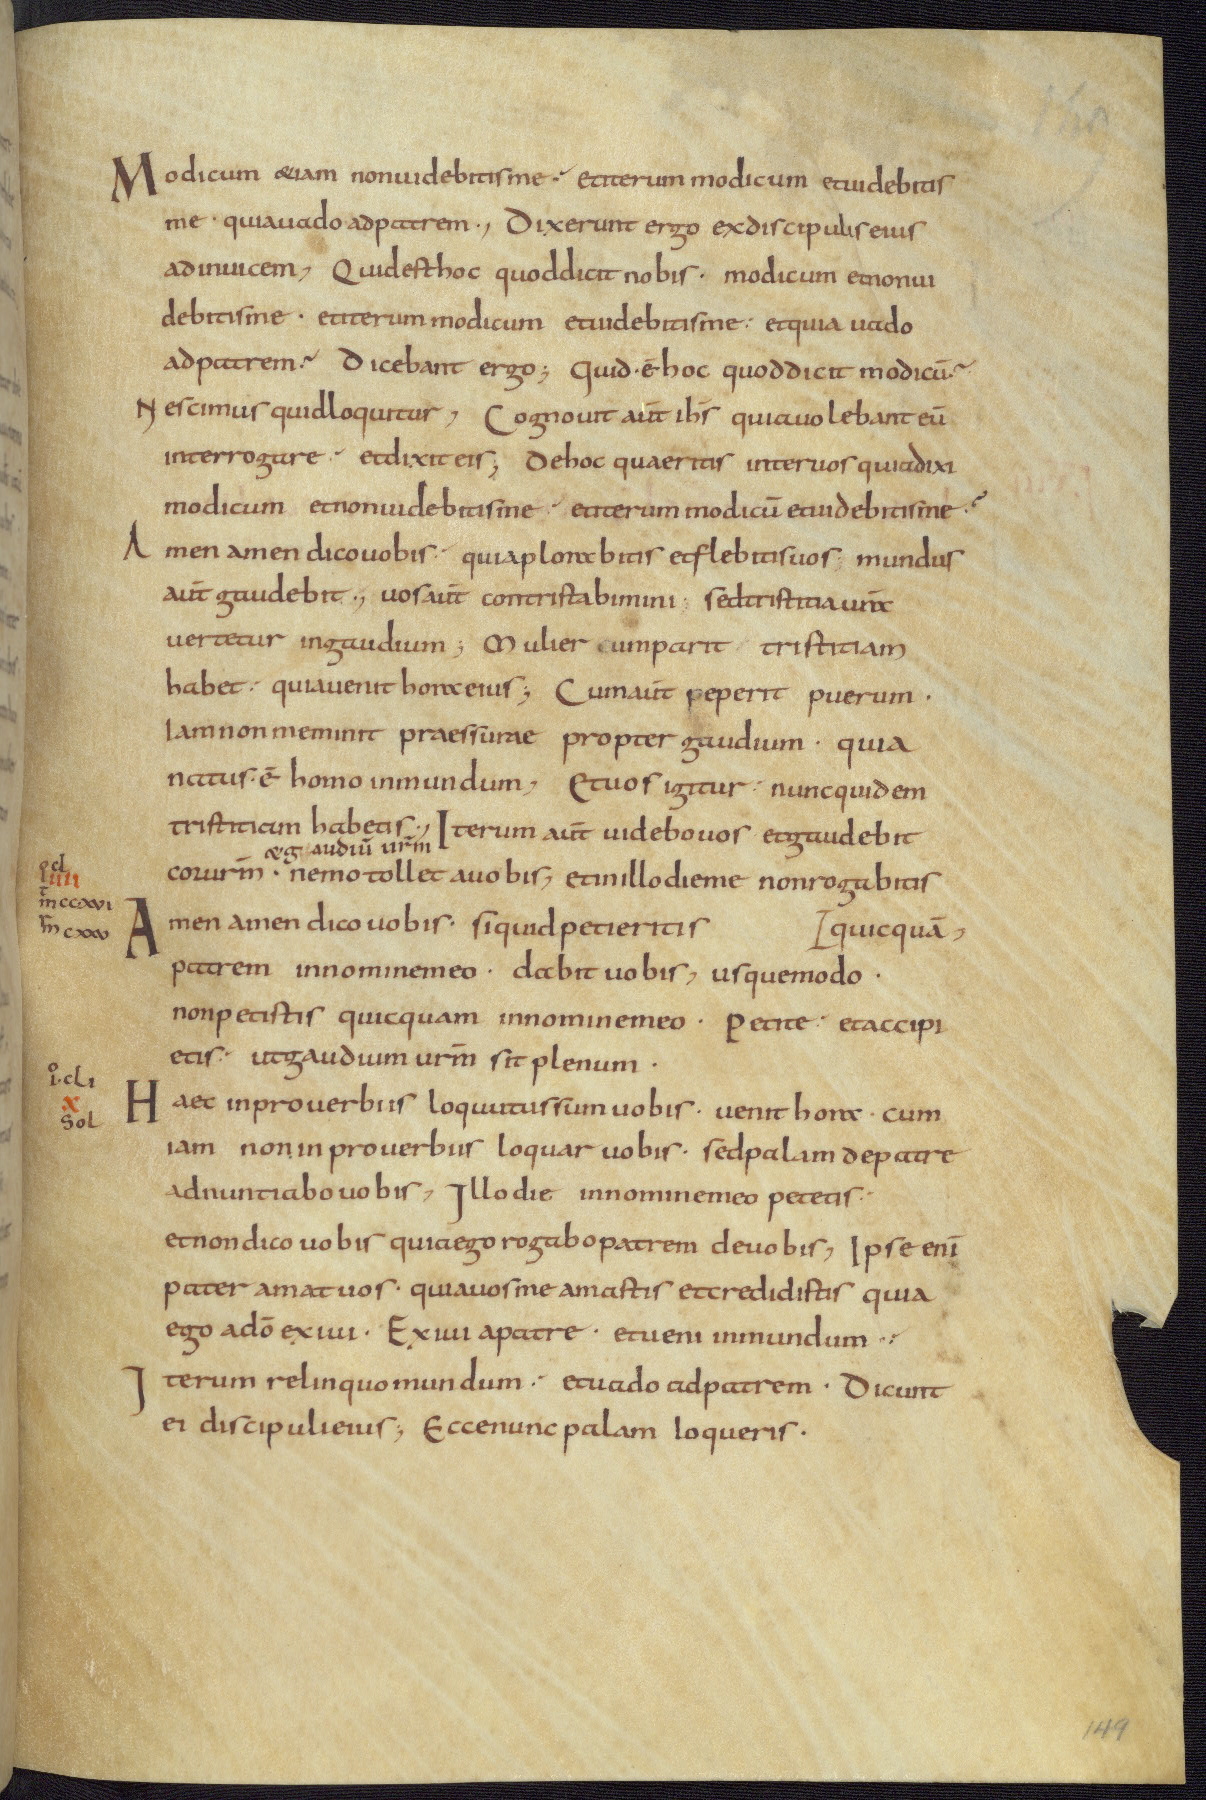 Modicum &iam nonuidebitisme·: etiterum modicum etuidebitis
me · quiauado adpatrem ·, Dixerunt ergo exdiscipulis eius
adinuicem, Quidesthoc quoddicit nobis · modicum etnonui
debitisme · etiterum modicum etuidebitisme : etquia uado
adpatrem :~ Dicebant ergo; Quid · ē hoc quoddicit modicū :~
Nescimus quidloquitur, Cognouit aūt ihs̄ quiauolebant eū
interrogare :~ etdixit eis; Dehoc quaeritis interuos quiadixi
modicum etnonuidebitisme :~ etiterum modicū etuidebitisme :~
Amen amen dico uobis : quia plorabitis etflebitisuos ; mundus
aūt gaudebit ·, uosaūt contristabimini ; sedtristitia ur̄a
uertetur ingaudium ; Mulier cumparit tristitiam
habet : quiauenit hora eius ; Cumaūt peperit puerum ·
Iamnonmeminit praessurae propter gaudium · quia
natus · ē homo inmundum, Etuos igitur : nuncquidem
tristitiam habetis ·, Iterum aūt uidebouos etgaudebit
&gaudiū ur̄m
corur̄m · nemo tollet auobis, etinillodieme nonrogabitis
Amen amen dico uobis · siquidpetieritis quicquā,
patrem innominemeo · dabit uobis, usquemodo ·
nonpetistis quicquam innominemeo · Petite : etaccipi
etis : utgaudium ur̄m sit plenum ·
Haec inprouerbiis loquutussum uobis · uenit hora · cum
iam non inprouerbiis loquar uobis · sedpalam depatre
adnuntiabo uobis, Illo die innominemeo petetis :
etnondico uobis quiaego rogabopatrem deuobis, Ipse enī
pater amat uos · quiauosme amastis etcredidistis quia
ego adō exiui · Exiui apatre · etueni inmundum ·:
Iterum relinquomundum : etuado adpatrem · Dicunt
ei discipulieius; Eccenunc palam loqueris ·
cl
iiii
m̄ ccxvi
m̄ cxxv
i · cli
x
Sol
149